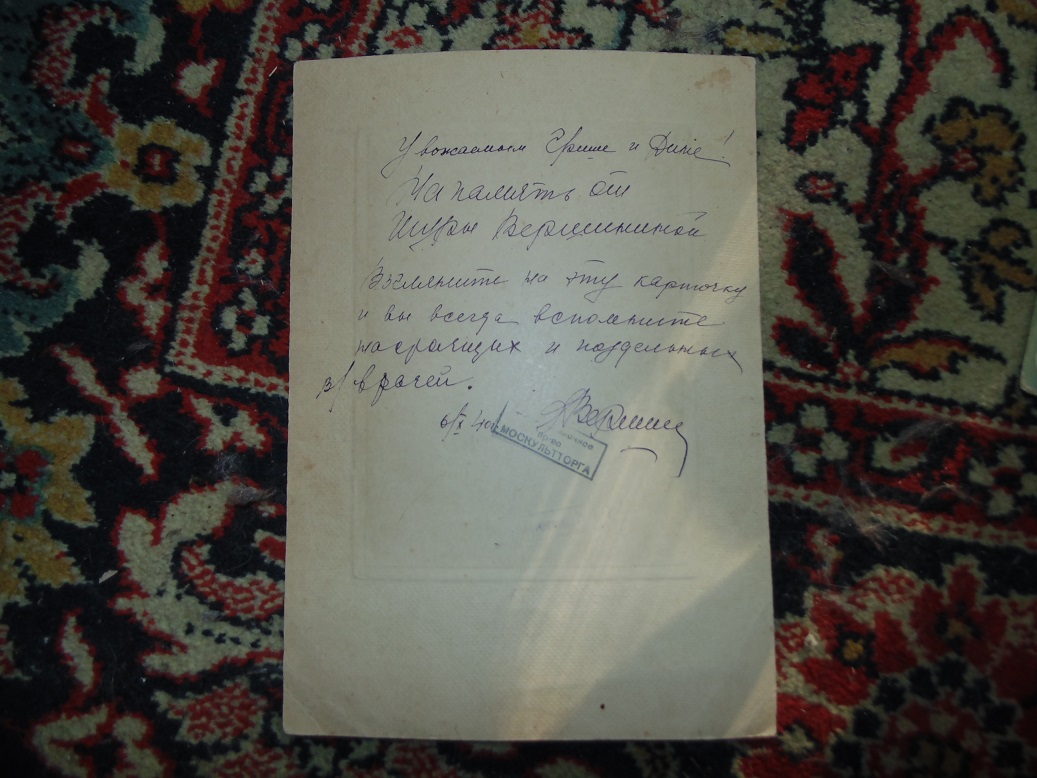 Уважаемым Грише и Дине!
На память от
Шуры Вершининой
Взгляните на эту карточку
и вы всегда вспомните
настоящих и поддельных
з/врачей.
6/X 40г
АВершин
МОСКУЛЬТТОРГА